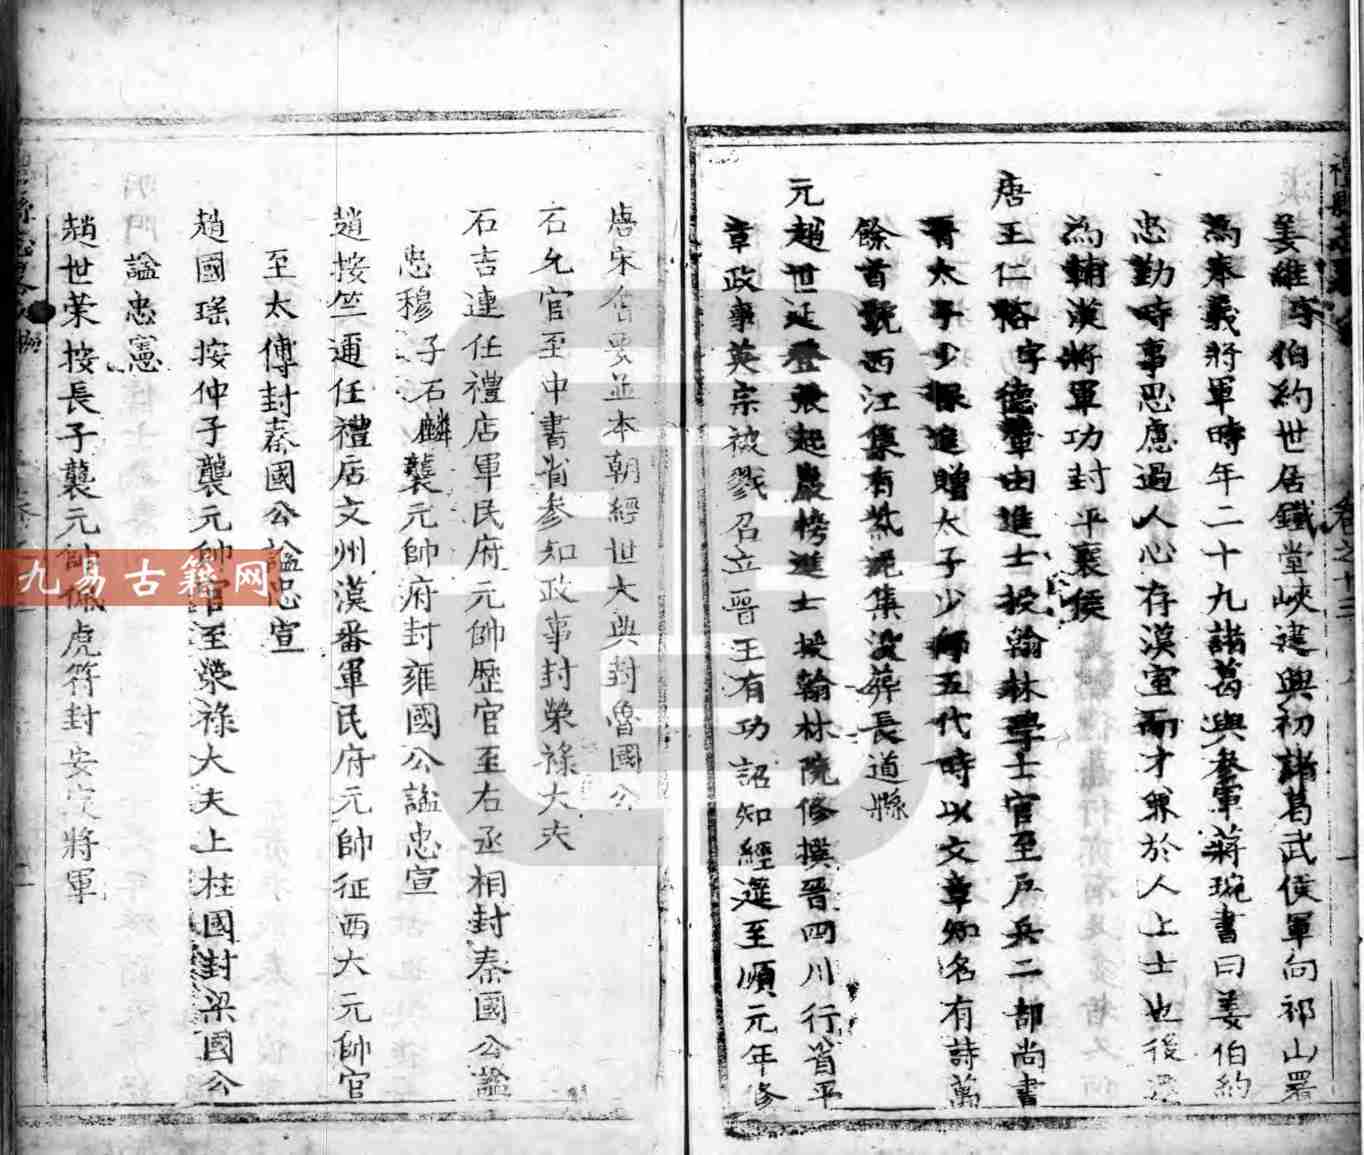 姜維字伯約世居鐵堂峽建興初諸葛武侯軍向祁山署
為奉義將軍時年二十九諸葛與參軍蔣琬書曰姜伯約
忠勤時事思慮過人心存漢室而才兼於人上士也後遷
為輔漢將軍功封平襄侯
唐王仁裕字德輦由進士授翰林學士官至戶兵二部尚書
晋太子少保進贈太子少師五代時以文章知名有詩萬
餘首號西江集有集沒葬長道縣
元趙世延登張起巖榜進士授翰林院修撰晉四川行省平
章政事英宗被戮召立晉王有功詔知經筵至順元年修
唐宋會要並本朝經世大典封魯國公
石允官至中書省参知政事封榮祿大夫
石吉連任禮店軍民府元帥歷官至右丞相封秦國公謚
忠穆子石麟襲元帥府封雍國公謚忠宣
趙按竺邇任禮店文州漢番軍民府元帥征西大元帥官
至太傅封秦國公謚忠宣
趙國瑤按仲子襲元帥官至榮祿大夫上柱國封梁國公
謚忠憲
趙世荣按長子襲元帥佩虎符封安遠將軍
禮縣志
卷之十三
九易古籍网